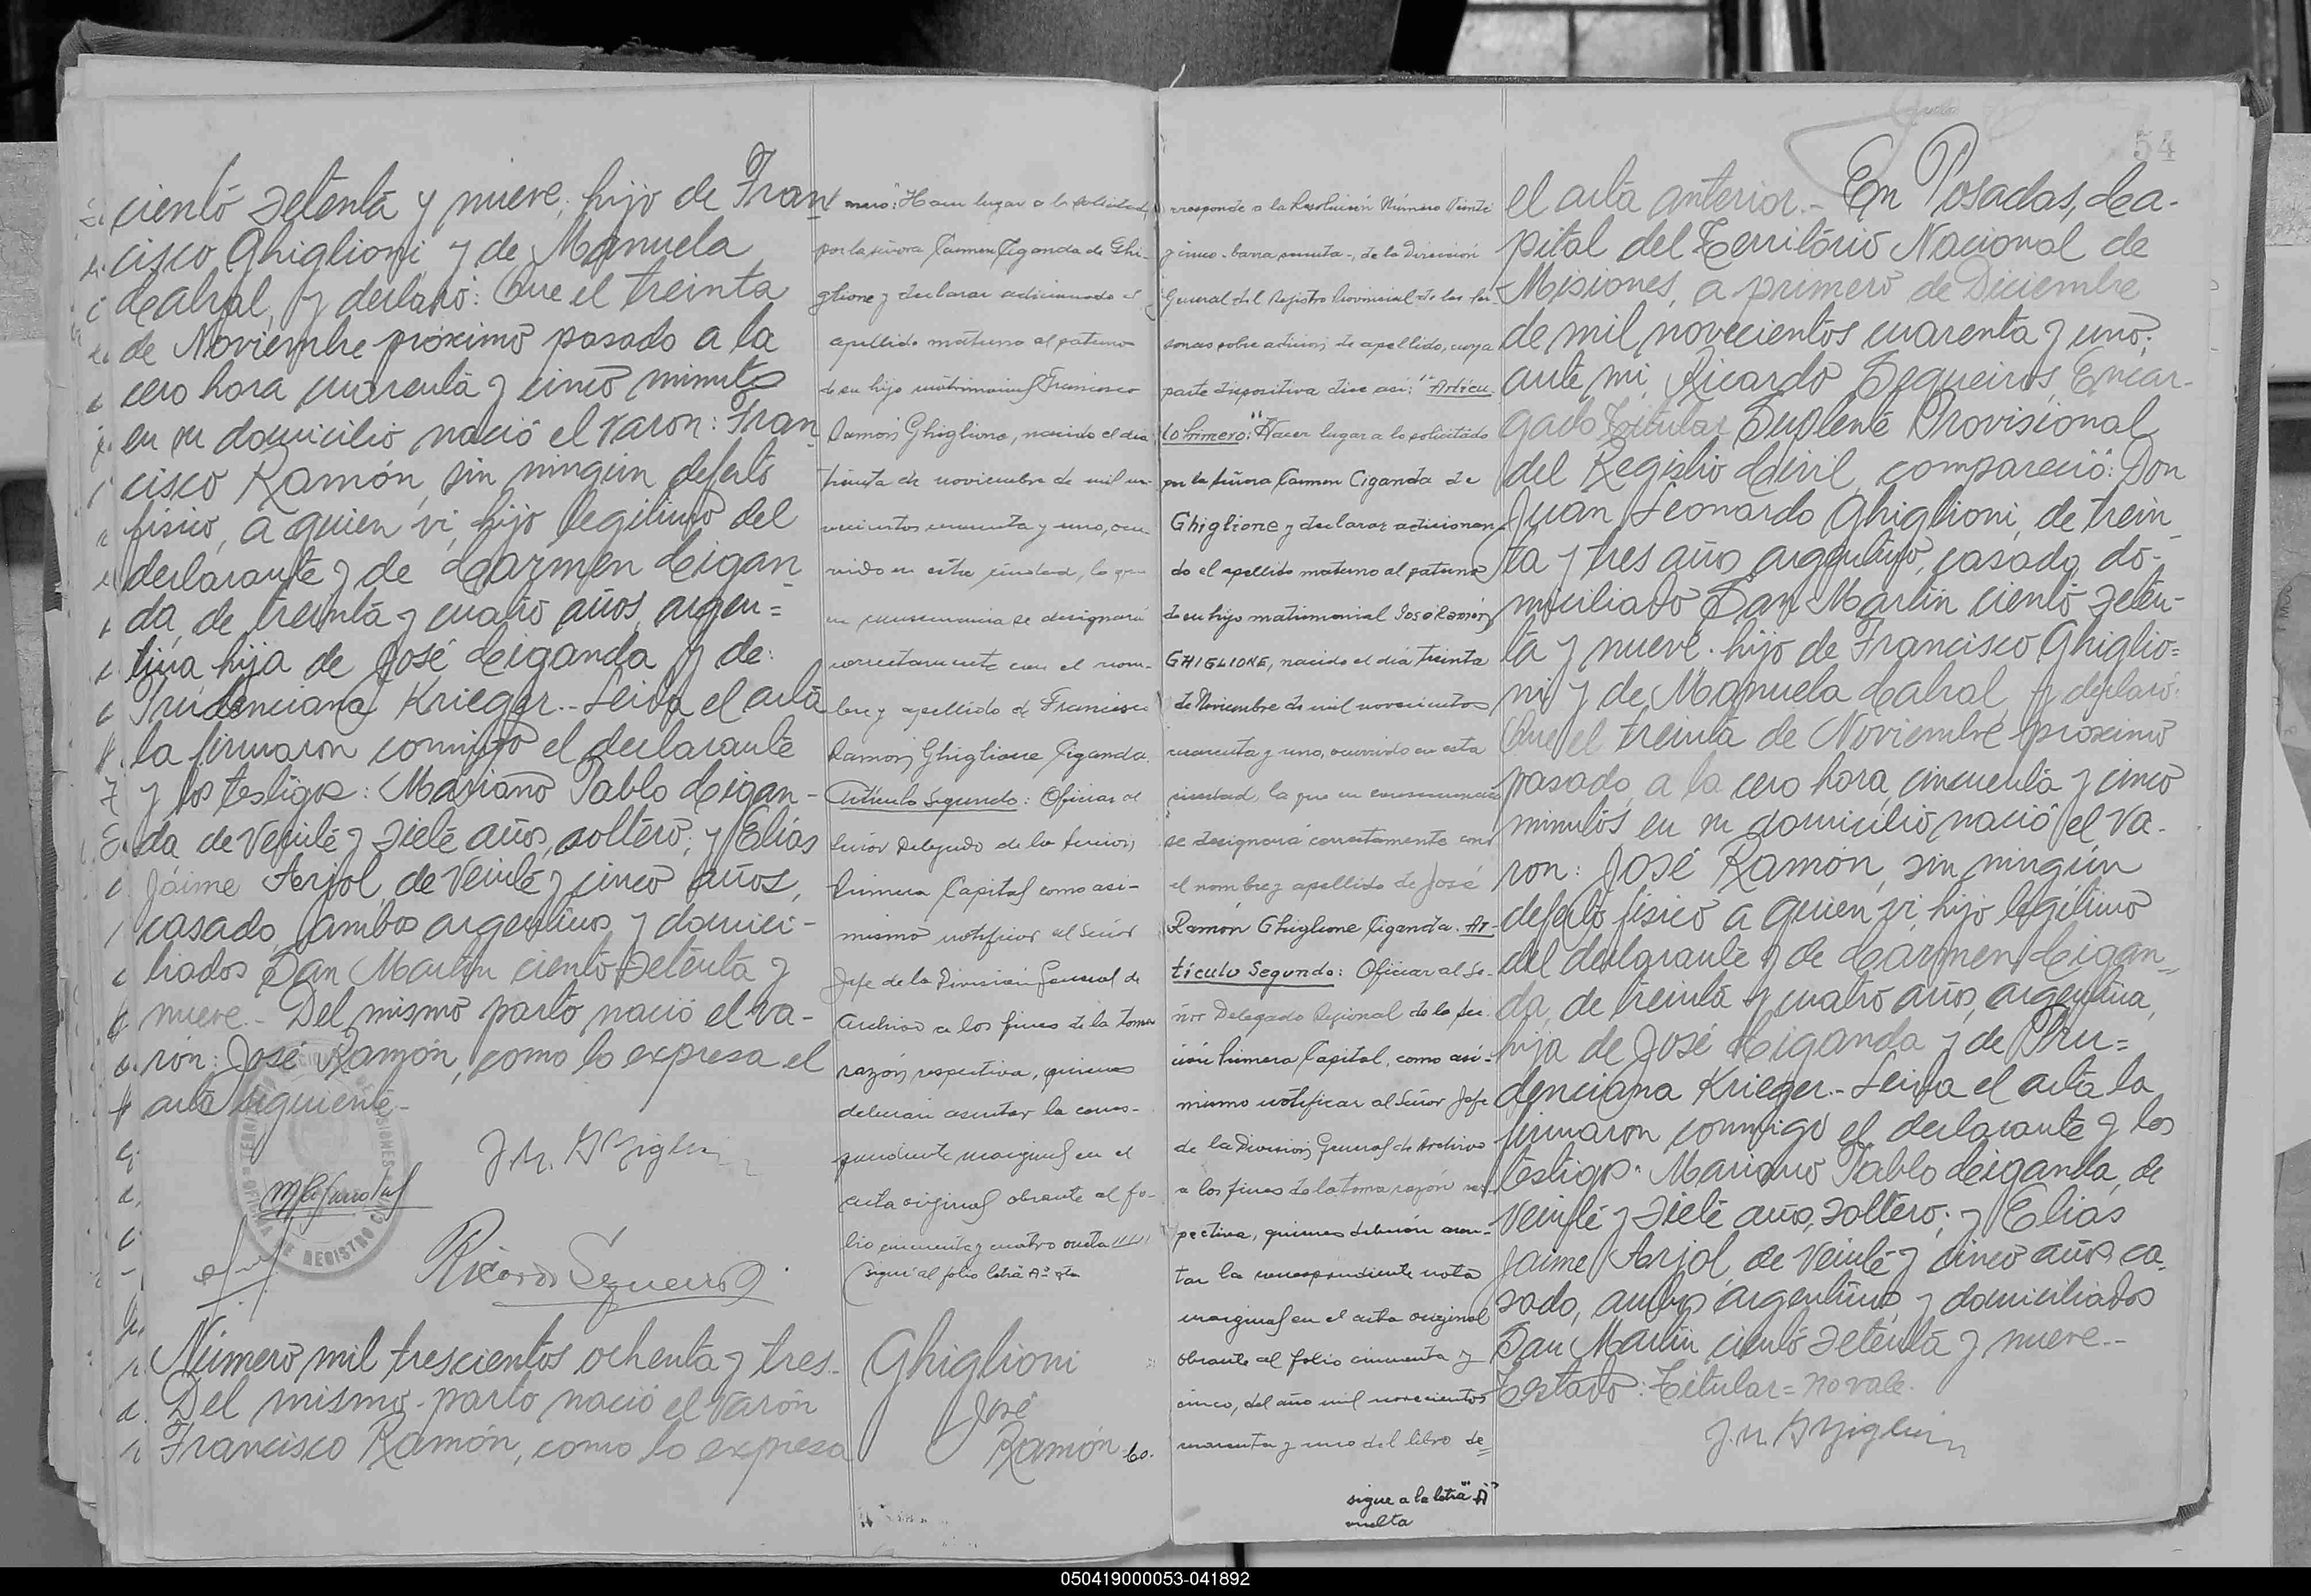 ciento setenta y nueve, hijo de Fran
cisco Ghiglioni y de Manuela
Cabral, y declaró: Que el treinta
de Noviembre próximo pasado a la
cero hora cuarenta y cinco minutos
en su domicilio nació el varon: Fran
cisco Ramón, sin ningún defecto
físico, a quien vi, hijo legítimo del
declarante y de Carmen Cigan_
da, de treinta y cuatro años, argen=
tina hija de José Ciganda y de:
Prudenciana Krieger.- Leida el acta
la firmaron conmigo el declarante
y los testigos: Mariano Pablo Cigan-
da de veinte y siete años, soltero; y Elías
Jaime Ferjol, de veinte y cinco años,
casado, ambos argentinos y domici-
liados San Martin ciento setenta y
nueve.- Del mismo parto nació el va-
rón: José Ramón, como lo expresa el
acta siguiente.-
OFICINA DE REGISTRO CIVIL
MISIONES
Ricardo Sequeiros
Número mil trescientos ochenta y tres.
Del mismo parto nació el varón
Francisco Ramón, como lo expresa
mero: "Hacer lugar a lo solicitado
por la señora Carmen Ciganda de Ghi-
glione y declarar adicionado el
apellido materno al paterno
de su hijo matrimonial Francisco
Ramón Ghiglione, nacido el dia
treinta de noviembre de mil no-
vecientos cuarenta y uno, ocu
rrido en esta ciudad, lo que
en consecuencia se designará
correctamente con el nom-
bre y apellido de Francisco
Ramón Ghiglione Ciganda.
Artículo Segundo: Oficiar al
Señor Delegado de la Sección
Primera Capital como asi-
mismo notificar al Señor
Jefe de la División General de
Archivo a los fines de la toma
razón respectiva, quienes
deberán asentar la corres-
pondiente marginal en el
acta original obrante al fo-
lio cincuenta y cuatro vuelta
(sigue al folio letra A" vta
Ghiglioni
José
Ramón
rresponde a la Resolución Número Veinte
y cinco - barra sesenta -, de la Dirección
General del Registro Provincial de las Per-
sonas sobre adición de apellido, cuya
parte dispositiva dice asi: "Artícu
lo Primero: "Hacer lugar a lo solicitado
por la señora Carmen Ciganda de
Ghiglione y declarar adicionan
do el apellido materno al paterno
de su hijo matrimonial José Ramón
GHIGLIONE, nacido el dia treinta
de Noviembre de mil novecientos
cuarenta y uno, ocurrido en esta
ciudad, la que en consecuencia
se designará correctamente con
el nombre y apellido de José
Ramón Ghiglione Ciganda. Ar-
tículo Segundo: Oficiar al Se-
ñor Delegado Regional de la Sec
ción Primera Capital, como asi-
mismo notificar al Señor Jefe
de la División General de Archivo
a los fines de la toma razón res
pectiva, quienes deberán asen-
tar la correspondiente nota
marginal en el acta original
obrante al folio cincuenta y
cinco, del año mil novecientos
cuarenta y uno del libro de
sigue a la letra "A"
vuelta
54
el acta anterior.- En Posadas, Ca-
pital del Territorio Nacional de
Misiones, a primero de Diciembre
de mil novecientos cuarenta y uno;
ante mi, Ricardo Sequeiros, Encar-
gado Titular Suplente Provisional
del Registro Civil, compareció: Don
Juan Leonardo Ghiglioni, de trein_
ta y tres años, argentino, casado, do-
miciliado San Martin ciento seten-
ta y nueve. hijo de Francisco Ghiglio=
ni y de Manuela Cabral, y declaró:
Que el treinta de Noviembre próximo
pasado, a la cero hora, cincuenta y cinco
minutos en su domicilio nació el va-
ron: José Ramón, sin ningún
defecto físico a quien vi, hijo legítimo
del declarante y de Carmen Cigan_
da, de treinta y cuatro años, argentina,
hija de José Ciganda y de Pru=
denciana Krieger.- Leida el acta la
firmaron conmigo el declarante y los
testigos: Mariano Pablo Ciganda, de
veinte y siete años, soltero; y Elías
Jaime Ferjol, de veinte y cinco años ca-
sado, ambos argentinos, y domiciliados
San Martin ciento setenta y nueve.-
Testado: Titular= no vale.
050419000053-041892